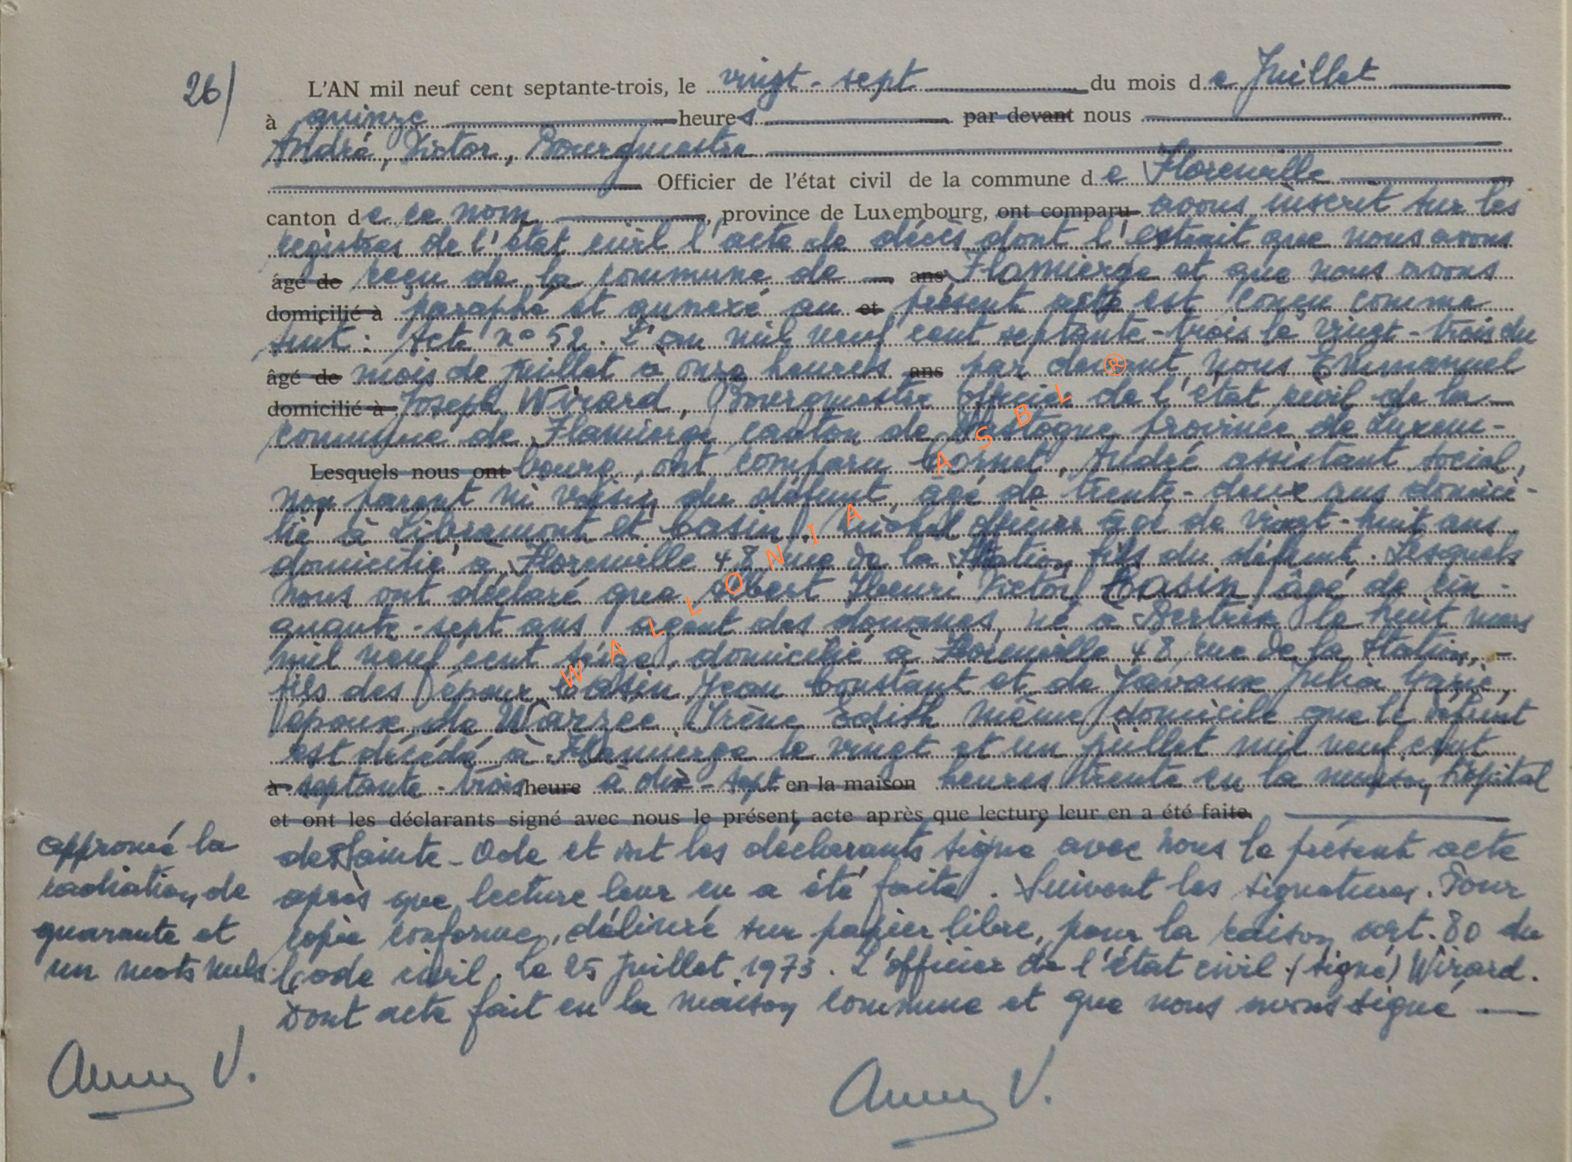 26/
L'AN mil neuf cent septante-trois, le vingt-sept du mois de Juillet
à quinze heures par devant nous
André, Victor, Bourgmestre
Officier de l'état civil de la commune de Florenville
canton de ce nom, province de Luxembourg, ont comparu avons inscrit sur les
registres de l'état civil l'acte de décès dont l'extrait que nous avons
âgé de reçu de la commune de ans Flamierge et que nous avons
domicilié à paraphé et annexé au et présent acte est conçu comme
suit : Acte n° 52. L'an mil neuf cent septante-trois le vingt-trois du
âgé de mois de juillet à onze heures ans par devant nous Emmanuel
domicilié à Joseph Wirard, Bourgmestre officier de l'état civil de la
commune de Flamierge canton de Bastogne province de Luxem-
Lesquels nous ont bourg, ont comparu Cornet, André assistant social,
non parent ni voisin du défunt, âgé de trente-deux ans domici-
lié à Libramont et Casin, Michel officier âgé de vingt-huit ans
domicilié à Florenville 48 rue de la Station fils du défunt. Lesquels
nous ont déclaré que Albert Henri Victor Casin âgé de cin-
quante-sept ans agent des douanes, né à Bertrix le huit mars
mil neuf cent seize, domicilié à Florenville 48 rue de la Station,
fils des époux Casin, Jean Constant et de Javaux Julia Marie,
époux de Warzée Irène Edith même domicile que le défunt
est décédé à Flamierge le vingt et un juillet mil neuf cent
à septante-trois heure à dix-sept en la maison heures trente en la maison, hôpital
et ont les déclarants signé avec nous le présent acte après que lecture leur en a été faite.
de Sainte-Ode et ont les déclarants signé avec nous le présent acte
après que lecture leur en a été faite. Suivent les signatures. Pour
copie conforme, délivré sur papier libre, pour la raison art. 80 du
Code civil. Le 25 Juillet 1973. L'officier de l'état civil. (signé) Wirard.
Dont acte fait en la maison commune et que nous avons signé
approuvé la
radiation de
quarante et
un mots nuls
V.
V.
WALLONIA ASBL ®